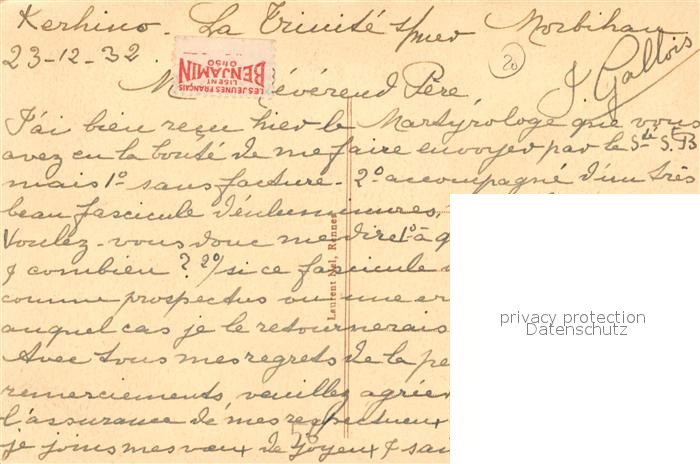 Kerhino - La Trinité s/mer Morbihan
23-12-32
LES JEUNES FRANÇAIS
LISENT
BENJAMIN
0f.50
20
J. Gallois
Révérend Père
J'ai bien reçu hier le Martyrologe que vous
avez eu la bonté de me faire envoyer par le Sté S.
mais 1º sans facture - 2º accompagné d'un très
beau fascicule d'enluminures.
Voulez-vous donc me dire 1º à
& combien ? 2º/ si ce fascicule
comme prospectus ou une er
auquel cas je le retournerais
Avec tous mes regrets de la pe
remerciements, veuillez agrée
l'assurance de mes respectueux
je joins mes vœux de joyeux & sai
Laurent Nel, Rennes
privacy protection
Datenschutz